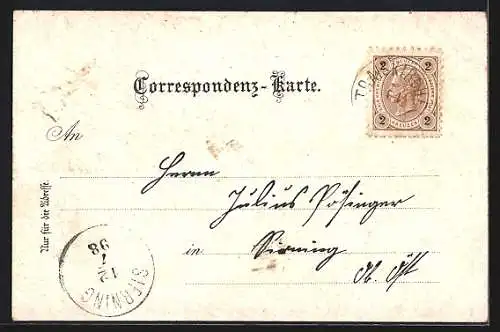 Correspondenz-Karte.
2 2
2 2
An
Herrn
Julius Pösinger
in Sirning
Ob. Öst
Nur für die Adresse.
SIERNING
12 7 98